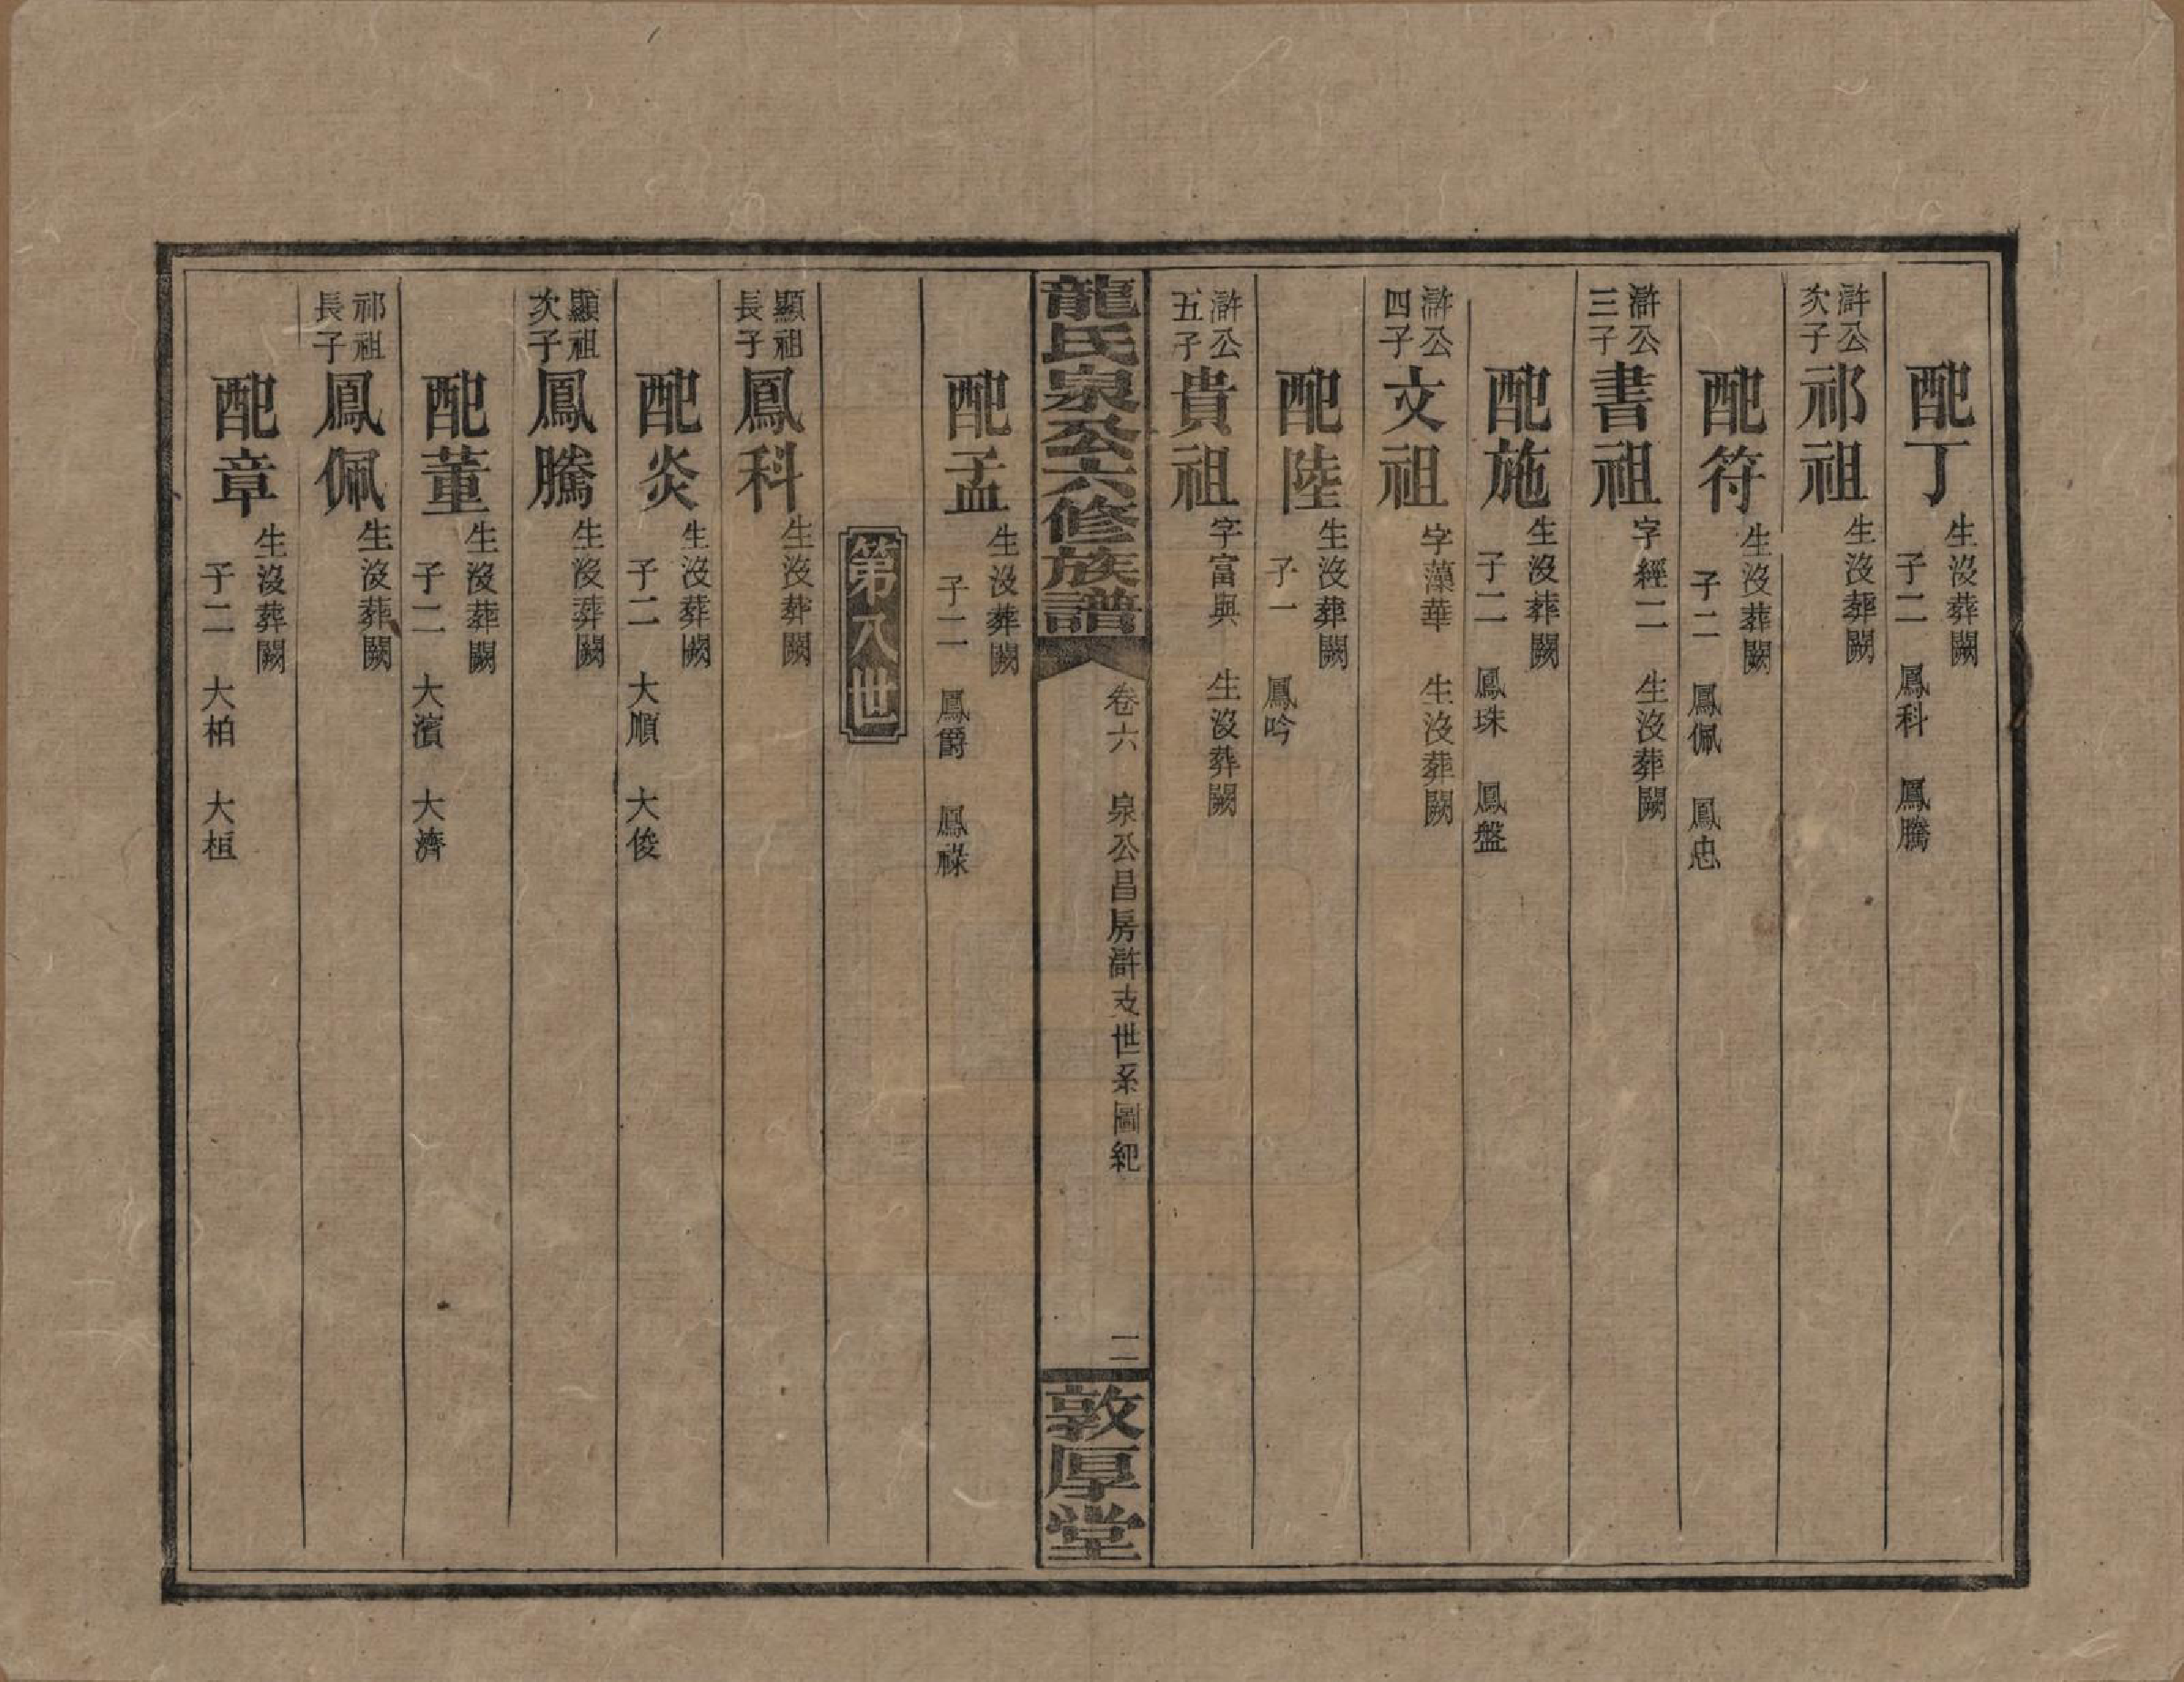 配丁 生沒葬闕 子二 鳳科 鳳騰
滸公次子 祁祖 生沒葬闕
配符 生沒葬闕 子二 鳳佩 鳳忠
滸公三子 書祖 字經二 生沒葬闕
配施 生沒葬闕 子二 鳳珠 鳳盤
滸公四子 文祖 字藻華 生沒葬闕
配陸 生沒葬闕 子一 鳳吟
滸公五子 貴祖 字富與 生沒葬闕
龍氏泉公六修族譜 卷六 泉公昌房滸支世系圖紀 二 敦厚堂
配孟 生沒葬闕 子二 鳳爵 鳳祿
第八世
顯祖長子 鳳科 生沒葬闕
配炎 生沒葬闕 子二 大順 大俊
顯祖次子 鳳騰 生沒葬闕
配董 生沒葬闕 子二 大濱 大濟
祁祖長子 鳳佩 生沒葬闕
配章 生沒葬闕 子二 大柏 大桓